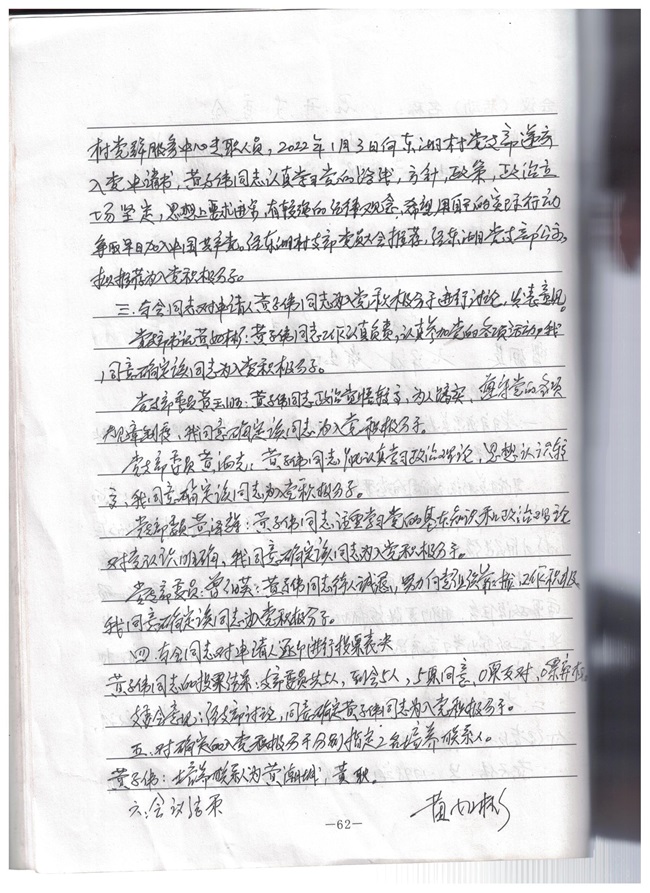 村党群服务中心专职人员，2022年1月3日向东湖村党支部递交
入党申请书，黄子伟同志认真学习党的路线，方针，政策，政治立
场坚定，思想上要求进步，有较强的法律观念，希望用自己的实际行动
争取早日加入中国共产党。经东湖村支部党员大会推荐，经东湖党支部公示，
拟推荐为入党积极分子。
三、与会同志对申请人黄子伟同志为入党积极分子进行讨论，发表意见。
党支部书记黄如彬：黄子伟同志工作认真负责，认真参加党的各项活动。我
同意确定该同志为入党积极分子。
党支部委员黄：黄子伟同志政治觉悟较高，为人踏实，遵守党的各项
规章制度，我同意确定该同志为入党积极分子。
党支部委员黄：黄子伟同志能认真学习政治理论，思想认识较
高，我同意确定该同志为入党积极分子。
党支部委员黄泽雄：黄子伟同志注重学习党的基本知识和政治理论
对党认识明确，我同意确定该同志为入党积极分子。
党支部委员：黄子伟同志待人诚恳，努力向党组织靠拢，工作积极
我同意确定该同志为入党积极分子。
四、与会同志对申请人逐个进行投票表决
黄子伟同志的投票结果：支部委员共5人，到会5人，5票同意，0票反对，0票弃权。
支委会意见：经支部讨论，同意确定黄子伟同志为入党积极分子。
五、对确定的入党积极分子分别指定2名培养联系人。
黄子伟：培养联系人为黄潮城，黄耿。
六、会议结束
黄如彬
—62—